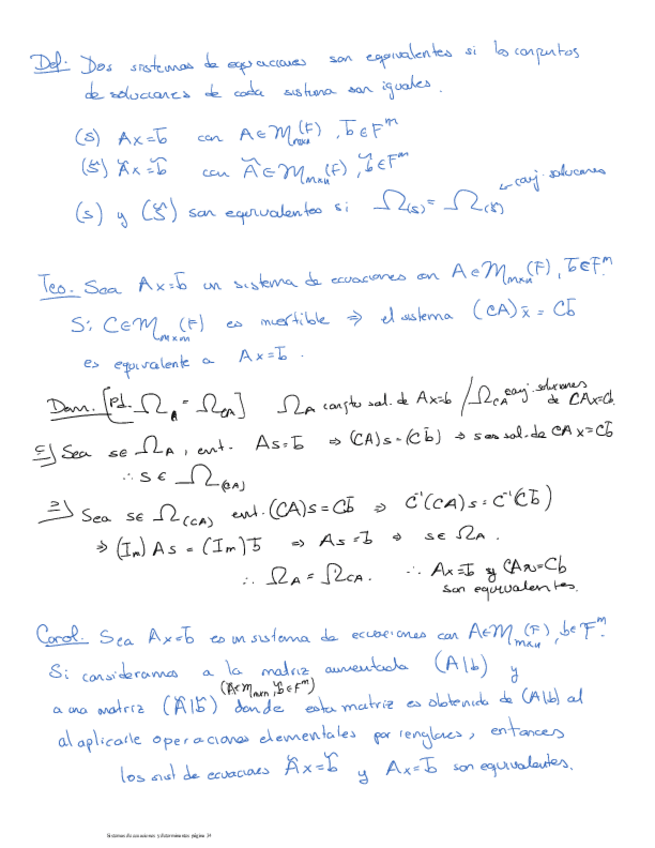 Def. Dos sistemas de ecuaciones son equivalentes si los conjuntos
de soluciones de cada sistema son iguales.
(S) Ax = b̄ con A ∈ M_{mxn}(F), b̄ ∈ F^m
(S̃) Ãx = b̃ con Ã ∈ M_{mxn}(F), b̃ ∈ F^m
(S) y (S̃) son equivalentes si Ω_(S) = Ω_(S̃) ← conj. soluciones
Teo. Sea Ax = b̄ un sistema de ecuaciones con A ∈ M_{mxn}(F), b̄ ∈ F^m.
Si C ∈ M_{mxm}(F) es invertible ⇒ el sistema (CA)x̄ = Cb̄
es equivalente a Ax = b̄.
Dem. [Pd. Ω_A = Ω_CA] Ω_A conjto sol. de Ax=b / Ω_CA conj. soluciones de CAx=Cb.
⊆) Sea s ∈ Ω_A, ent. As = b̄ ⇒ (CA)s = (Cb̄) ⇒ s es sol. de CAx = Cb̄
∴ s ∈ Ω_(CA)
⊇) Sea s ∈ Ω_(CA) ent. (CA)s = Cb̄ ⇒ C⁻¹(CA)s = C⁻¹(Cb̄)
⇒ (I_m)As = (I_m)b̄ ⇒ As = b̄ ⇒ s ∈ Ω_A.
∴ Ω_A = Ω_CA. ∴ Ax = b̄ y CAx = Cb
son equivalentes.
Corol. Sea Ax = b̄ es un sistema de ecuaciones con A ∈ M_{mxn}(F), b ∈ F^m.
Si consideramos a la matriz aumentada (A|b) y
(Ã ∈ M_{mxn}, b̃ ∈ F^m)
a una matriz (Ã|b̃) donde esta matriz es obtenida de (A|b) al
al aplicarle operaciones elementales por renglones, entonces
los sist de ecuaciones Ãx = b̃ y Ax = b̄ son equivalentes.
Sistemas de ecuaciones y determinantes página 39